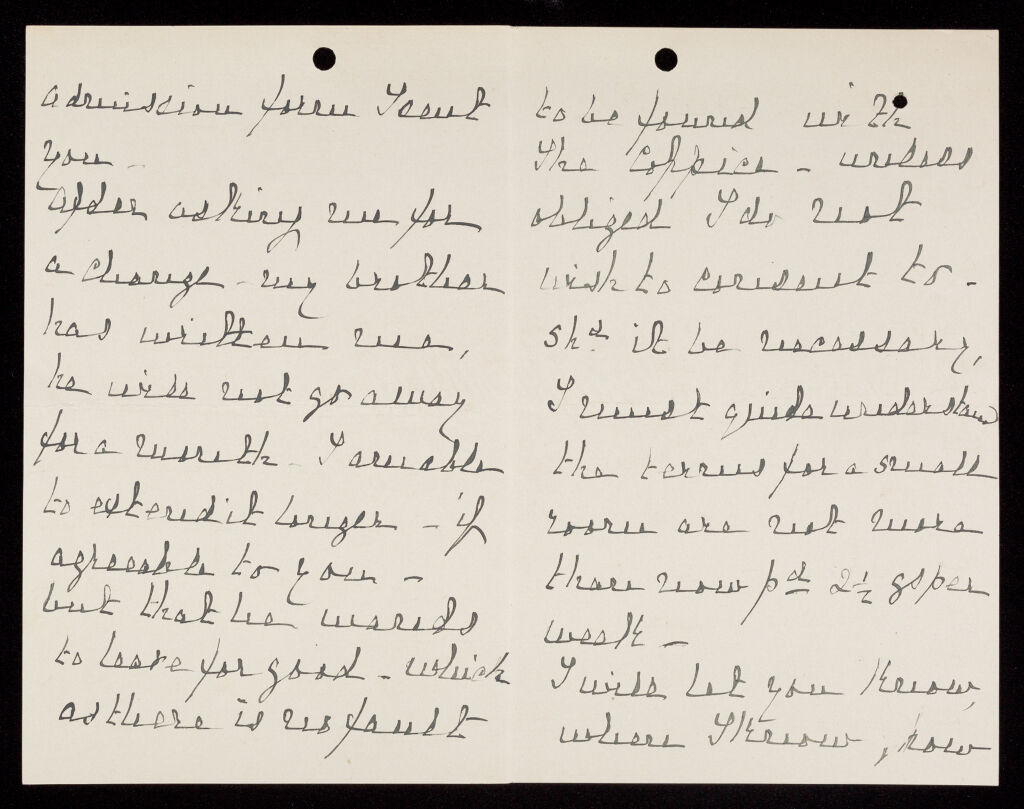 admission form I sent
you -
After asking me for
a change - my brother
has written me,
he will not go away
for a month - I am able
to extend it longer - if
agreeable to you -
but that he wants
to leave for good - which
as there is no fault
to be found with
The Coppice - unless
obliged I do not
wish to consent to -
shd it be necessary,
I must quite understand
the terms for a small
room are not more
than now pd 2½ gs per
week -
I will let you know,
when I know, how